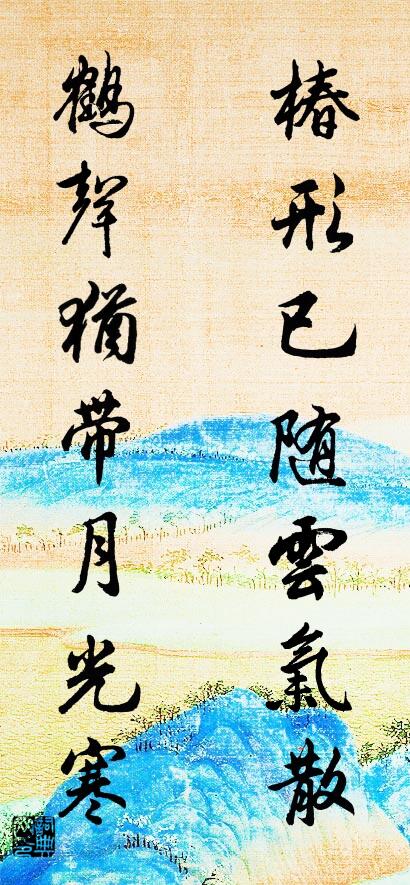 椿形已随雲氣散
鶴聲猶帶月光寒